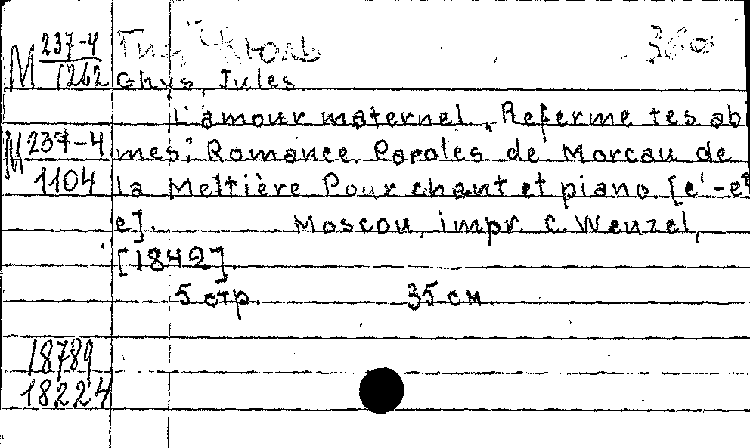 М 237-4/1262 Гис, Жюль
Ghys, Jules
L'amour maternel. Referme tes abi
М 237-4/1104 mes; Romance. Paroles de Morcau de
la Meltière Pour chant et piano. [e'-e²
e]. Moscou, impr. C. Wenzel,
[1842].
5 стр. 35 см
18789
18224